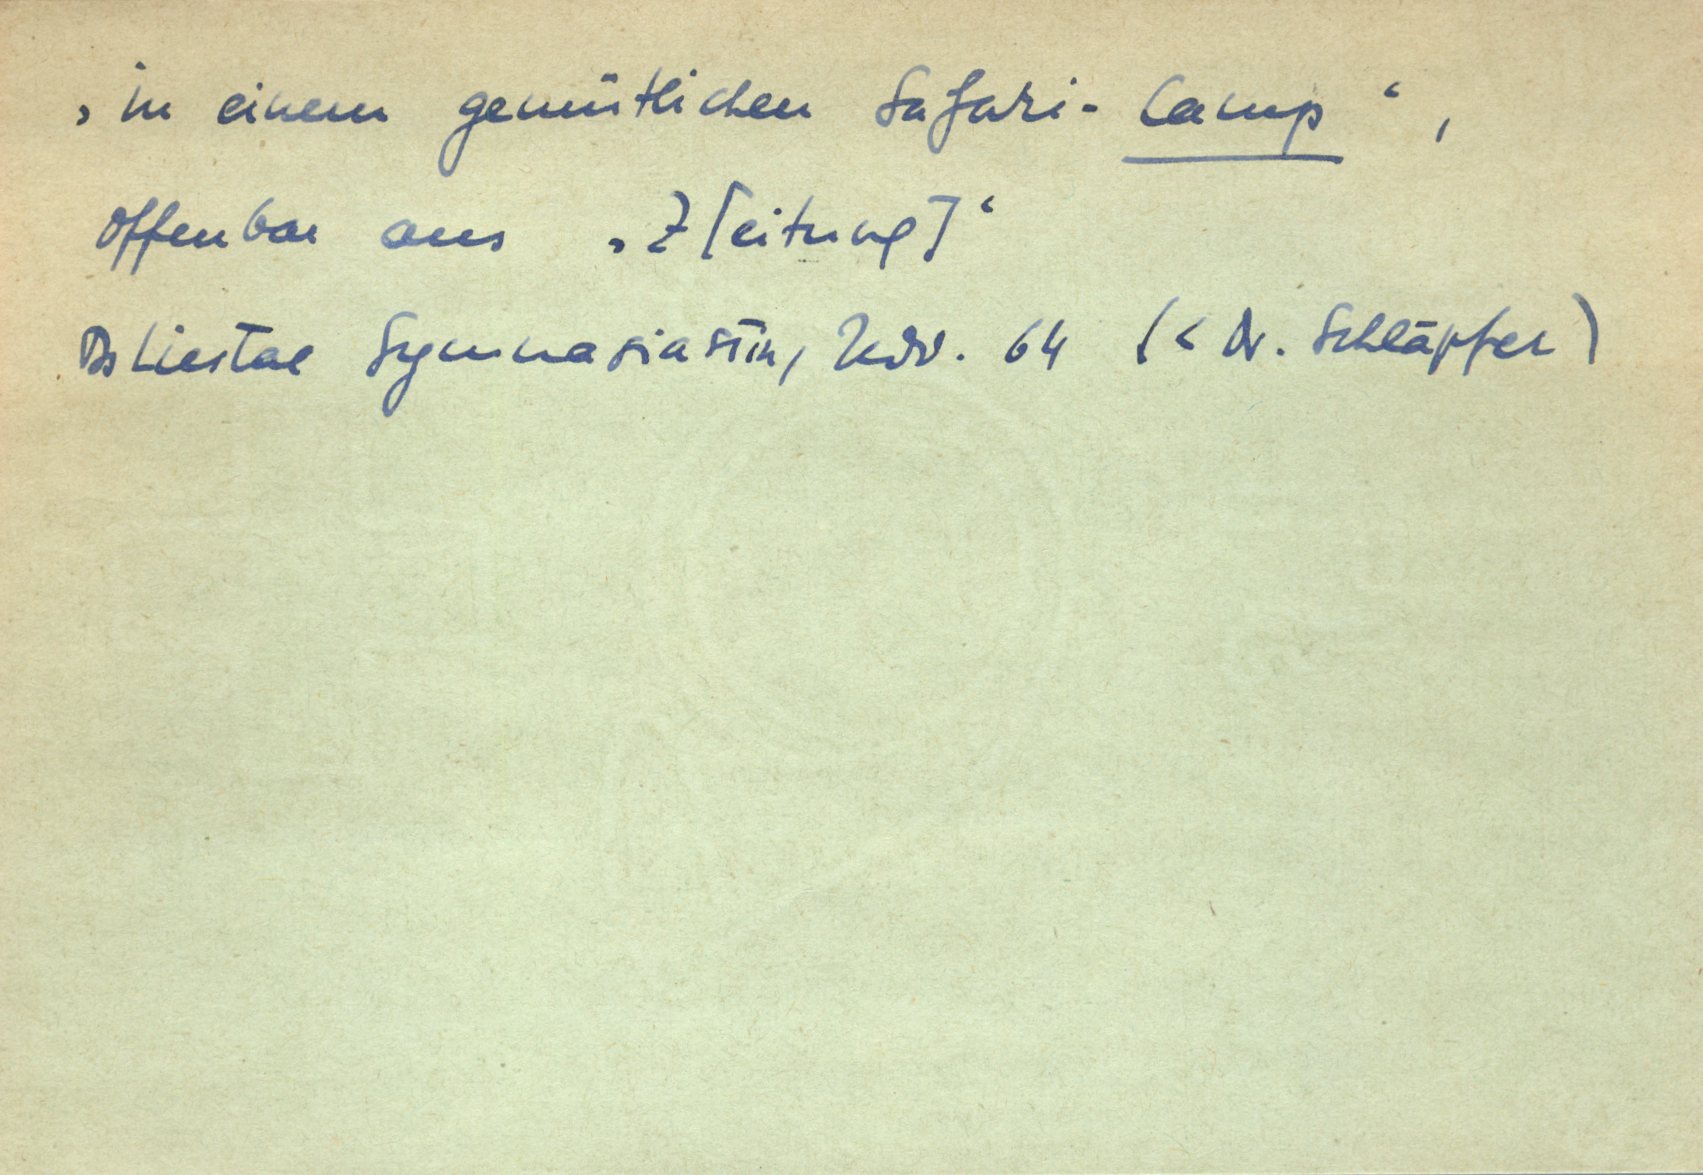 ‚in einem gemütlichen Safari-Camp‘,
offenbar aus ‚Z[eitung]‘
Liestal Gymnasiastin, 64 (< Dr. Schläpfer)